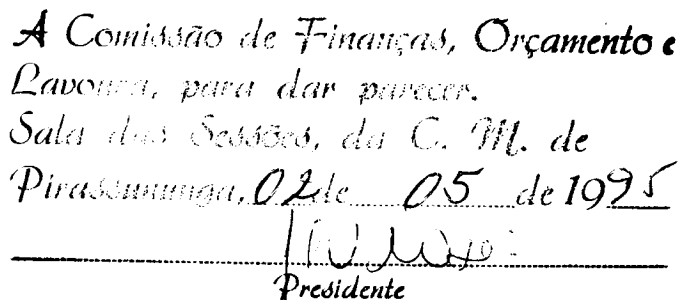 A Comissão de Finanças, Orçamento e
Lavoura, para dar parecer.
Sala das Sessões, da C. M. de
Pirassununga, 02 de 05 de 1995
Presidente